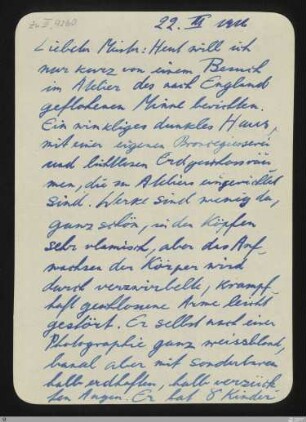 22. III 1916
Liebster Mister: Heut will ich
nur kurz von einem Besuch
im Atelier des nach England
geflohenen Minne berichten.
Ein winkliges dunkles Haus,
mit einer eigenen Bronzegiesserei
und lichtlosen Erdgeschossräu
men, die zu Ateliers eingerichtet
sind. Werke sind wenig da,
ganz schön, in den Köpfen
sehr vlamisch, aber das Auf
wachsen der Körper wird
durch verzwirbelte, krampf
haft geschlossene Arme leicht
gestört. Er selbst nach einer
Photographie ganz weissblond,
banal aber mit sonderbaren
halb erdhaften, halb verzück
ten Augen. Er hat 8 Kinder